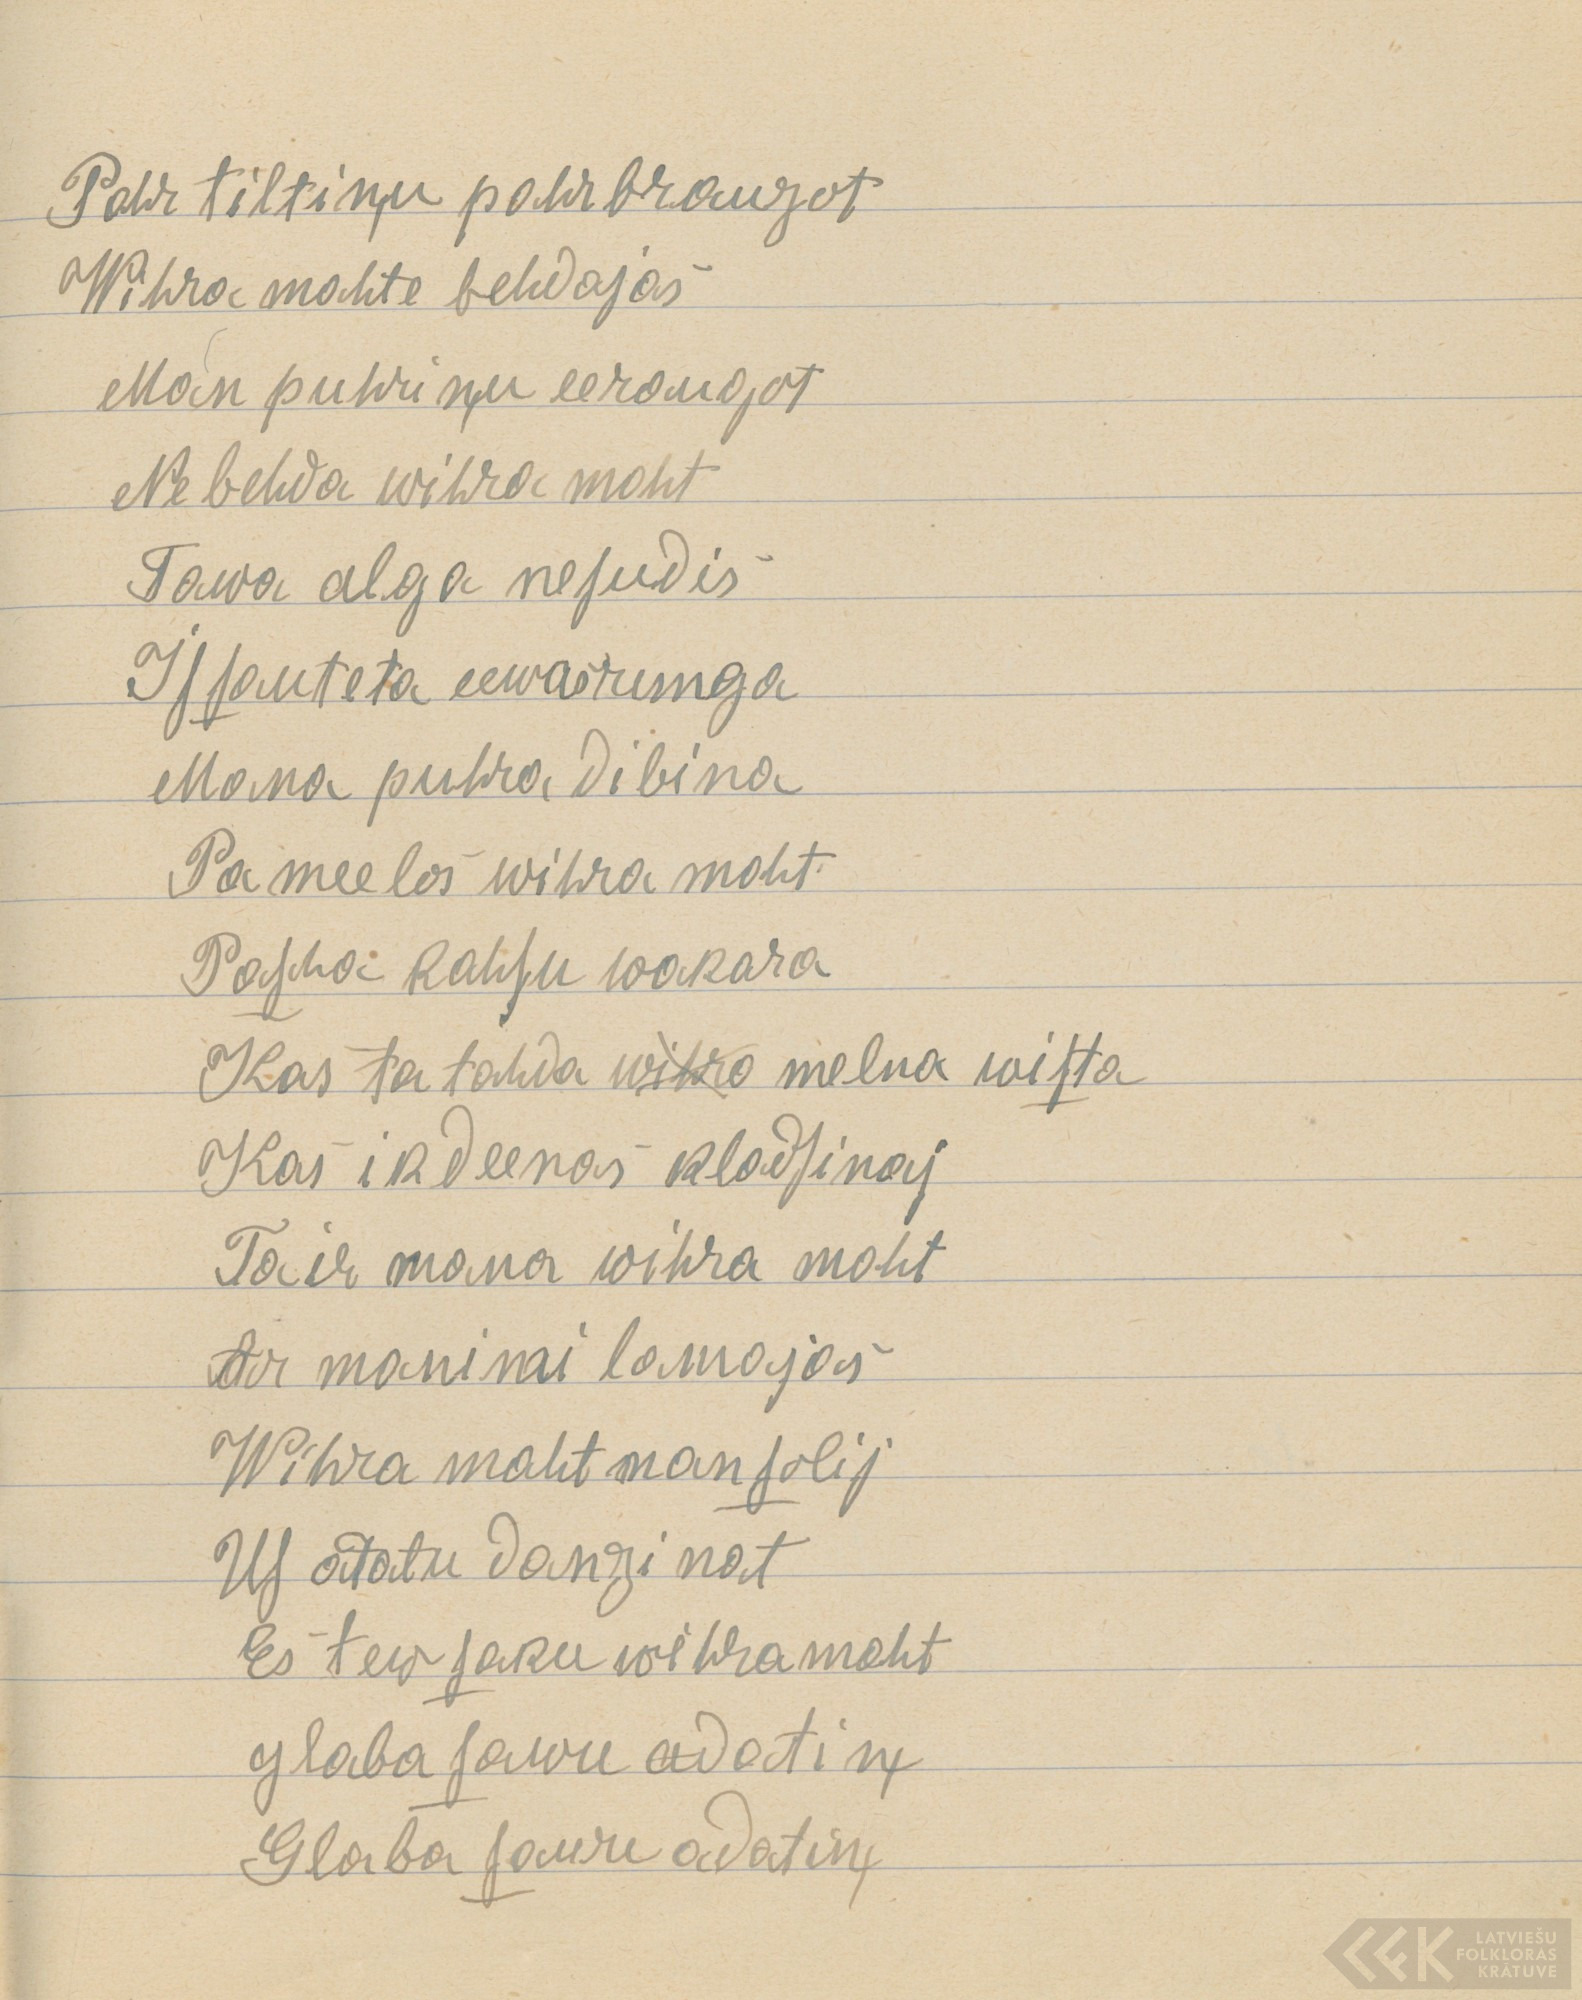 Pahr tiltiņu pahrbraugot
Wihra mahte behdajas
Man puhriņu eeraugot
Ne behda wihra maht
Tawa alga nesudis
Iſſauteta eewas runga
Mana puhra dibina
Pameelos wihra maht
Paſcha kahſu wakara
Kas ta tahda wihra melna wiſta
Kas ikdeenas kladſinaj
Ta ir mana wihra maht
Ar manimi lamajas
Wihra maht man ſolij
Uſ adatu danzinat
Es tew ſaku wihra maht
glaba ſawu adatiņ
Glaba ſawu adatiņ
LATVIEŠU
FOLKLORAS
KRĀTUVE